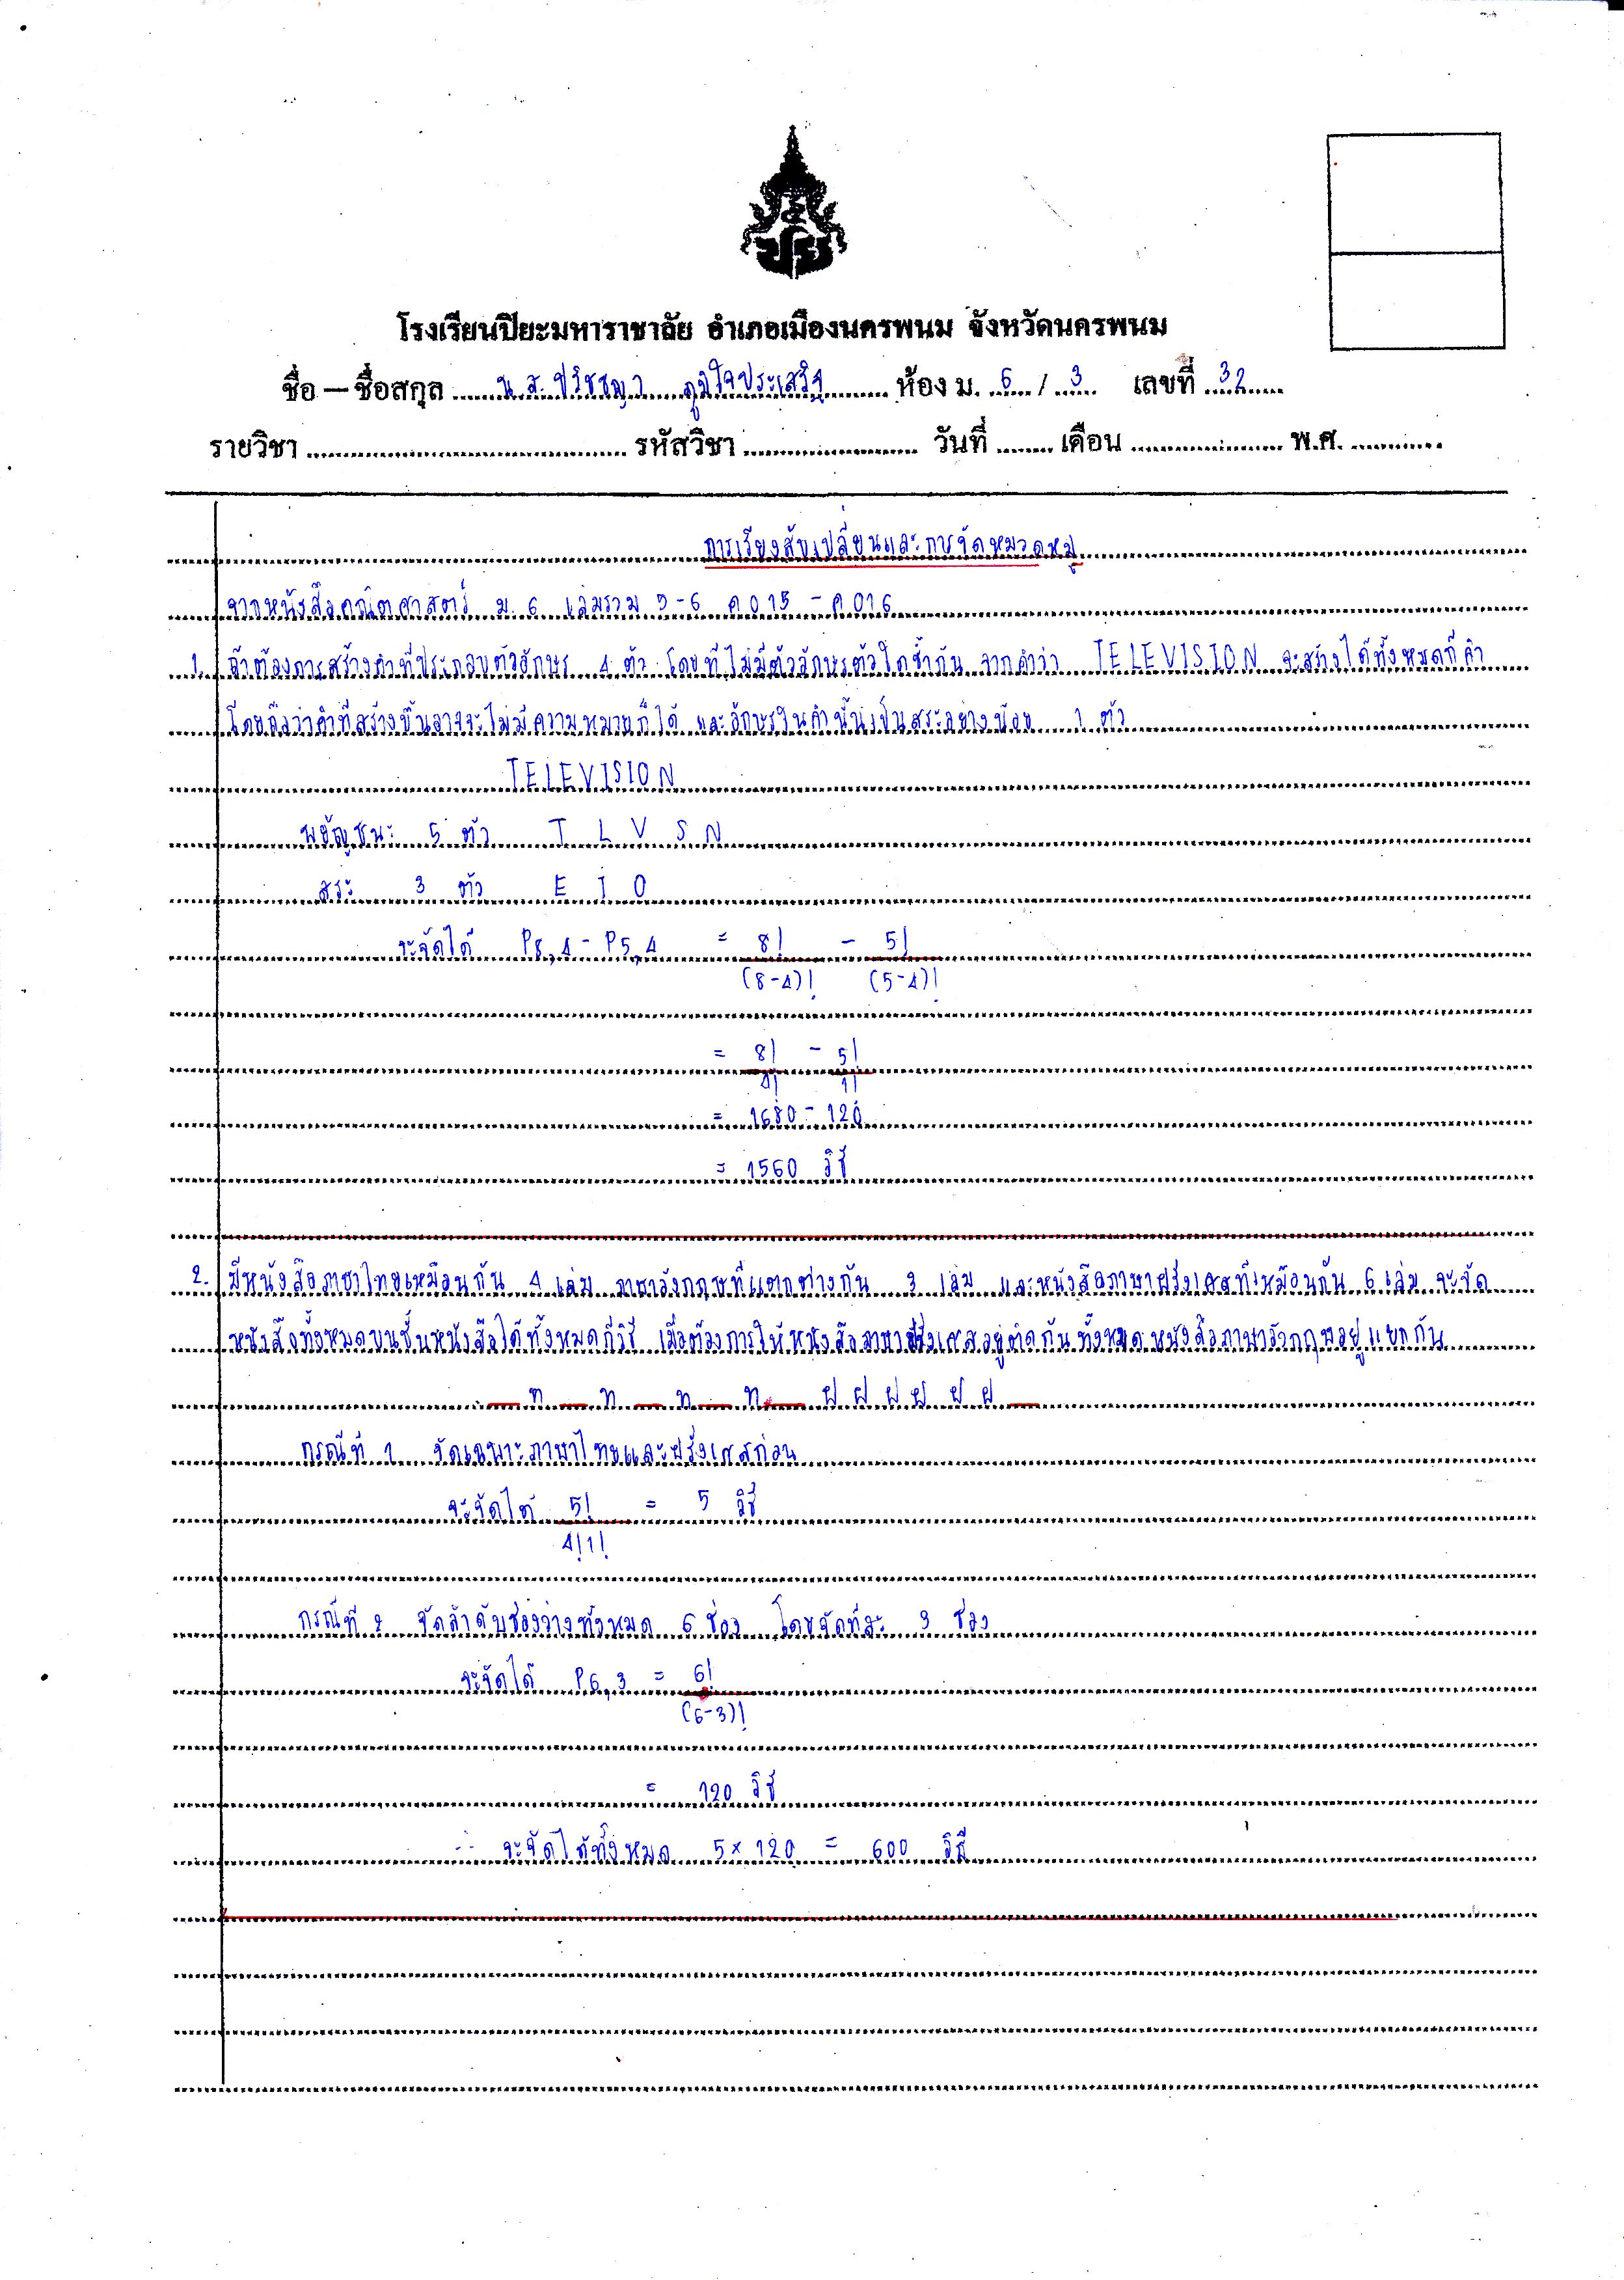 โรงเรียนปิยะมหาราชาลัย อำเภอเมืองนครพนม จังหวัดนครพนม
ชื่อ – ชื่อสกุล น.ส. ปวิชญา ภูมิใจประเสริฐ ห้อง ม. 6 / 3 เลขที่ 32
รายวิชา รหัสวิชา วันที่ เดือน พ.ศ.
การเรียงสับเปลี่ยนและการจัดหมวดหมู่
จากหนังสือคณิตศาสตร์ ม.6 เล่มรวม 5-6 ค 015 - ค 016
1. ถ้าต้องการสร้างคำที่ประกอบตัวอักษร 4 ตัว โดยที่ไม่มีตัวอักษรตัวใดซ้ำกัน จากคำว่า TELEVISION จะสร้างได้ทั้งหมดกี่คำ
โดยถือว่าคำที่สร้างขึ้นอาจจะไม่มีความหมายก็ได้ และอักษรในคำนั้นเป็นสระอย่างน้อย 1 ตัว
TELEVISION
พยัญชนะ 5 ตัว T L V S N
สระ 3 ตัว E I O
จะจัดได้ P8,4 - P5,4 = 8! - 5!
(8-4)! (5-4)!
= 8! - 5!
4! 1!
= 1680 - 120
= 1560 วิธี
2. มีหนังสือภาษาไทยเหมือนกัน 4 เล่ม ภาษาอังกฤษที่แตกต่างกัน 3 เล่ม และหนังสือภาษาฝรั่งเศสที่เหมือนกัน 6 เล่ม จะจัด
หนังสือทั้งหมดบนชั้นหนังสือได้ทั้งหมดกี่วิธี เมื่อต้องการให้หนังสือภาษาฝรั่งเศสอยู่ติดกันทั้งหมด หนังสือภาษาอังกฤษอยู่แยกกัน
_ ท _ ท _ ท _ ท _ ฝ ฝ ฝ ฝ ฝ ฝ _
กรณีที่ 1 จัดเฉพาะภาษาไทยและฝรั่งเศสก่อน
จะจัดได้ 5! = 5 วิธี
4!1!
กรณีที่ 2 จัดลำดับช่องว่างทั้งหมด 6 ช่อง โดยจัดทีละ 3 ช่อง
จะจัดได้ P6,3 = 6!
(6-3)!
= 120 วิธี
∴ จะจัดได้ทั้งหมด 5 × 120 = 600 วิธี